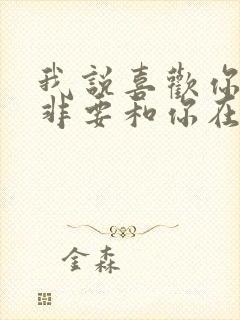 我說喜歡你
非要和你在
金森